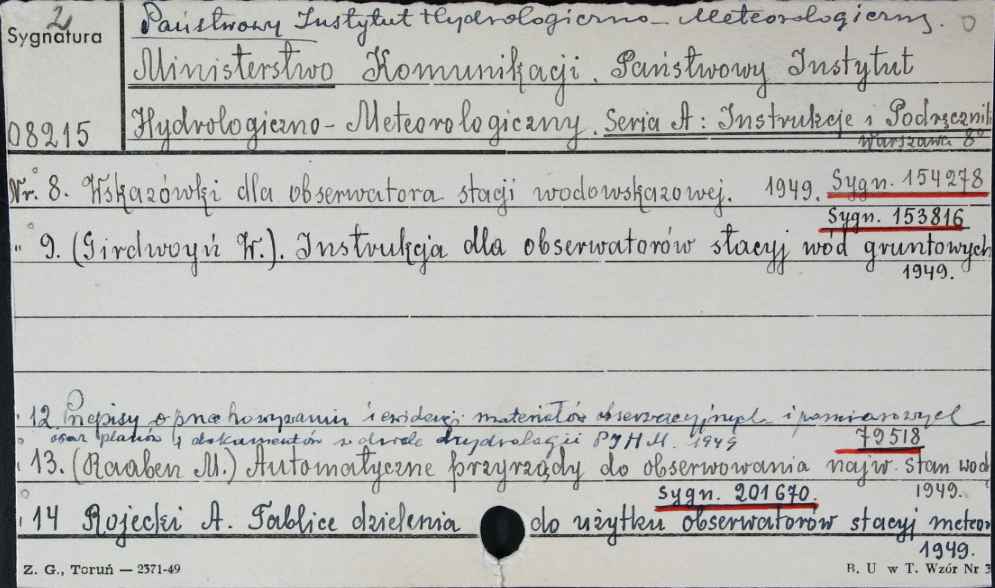 2 Państwowy Instytut Hydrologiczno-Meteorologiczny.
Sygnatura
Ministerstwo Komunikacji. Państwowy Instytut
08215 Hydrologiczno-Meteorologiczny. Seria A: Instrukcje i Podręcznik
Warszawa 8°
Nr. 8. Wskazówki dla obserwatora stacji wodowskazowej. 1949. Sygn. 154278
Sygn. 153816
" 9. (Girdwoyń W.). Instrukcja dla obserwatorów stacyj wód gruntowych
1949.
12. Przepisy o przechowywaniu i ewidencji materiałów obserwacyjnych i pomiarowych
oraz planów i dokumentów z działu hydrologii PIHM. 1949
79518
13. (Raaben M.) Automatyczne przyrządy do obserwowania najw. stan wod
1949.
sygn. 201670.
14 Rojecki A. Tablice dzielenia do użytku obserwatorów stacyj meteor
1949.
Z. G., Toruń — 2371-49 B. U w T. Wzór Nr 3